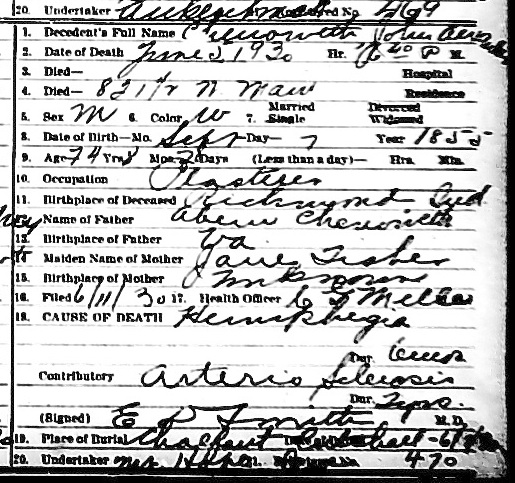 20. Undertaker No. 469
1. Decedent's Full Name Chenoweth John
2. Date of Death June 2 1930 Hr. P M.
3. Died— Hospital
4. Died— 831 1/2 N Main Residence
5. Sex M 6. Color W 7. Married Single Divorced Widowed
8. Date of Birth—Mo. Sept Day 7 Year 1855
9. Age 74 Yrs 8 Mos. Days (Less than a day)— Hrs. Min.
10. Occupation Plasterer
11. Birthplace of Deceased Richmond Ind
12. Name of Father Chenoweth
13. Birthplace of Father Va
14. Maiden Name of Mother Jane Fisher
15. Birthplace of Mother Unknown
16. Filed 6/11/30 17. Health Officer
18. CAUSE OF DEATH Hemiplegia
Dur.
Contributory Arterio Sclerosis
Dur. yrs.
(Signed) E P Smith M.D.
19. Place of Burial
20. Undertaker No. 470